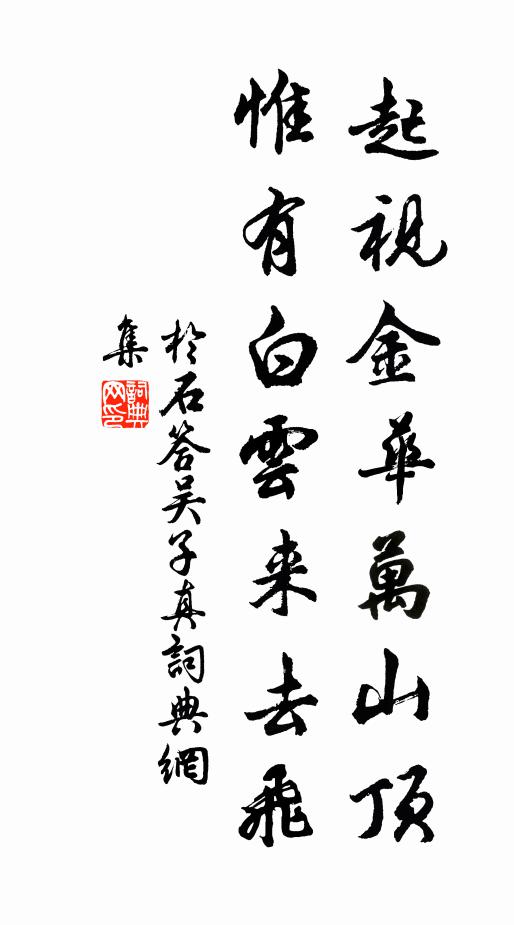 起視金華萬山頂
惟有白雲来去飛
於石答吴子真詞典網
集
詞典網印